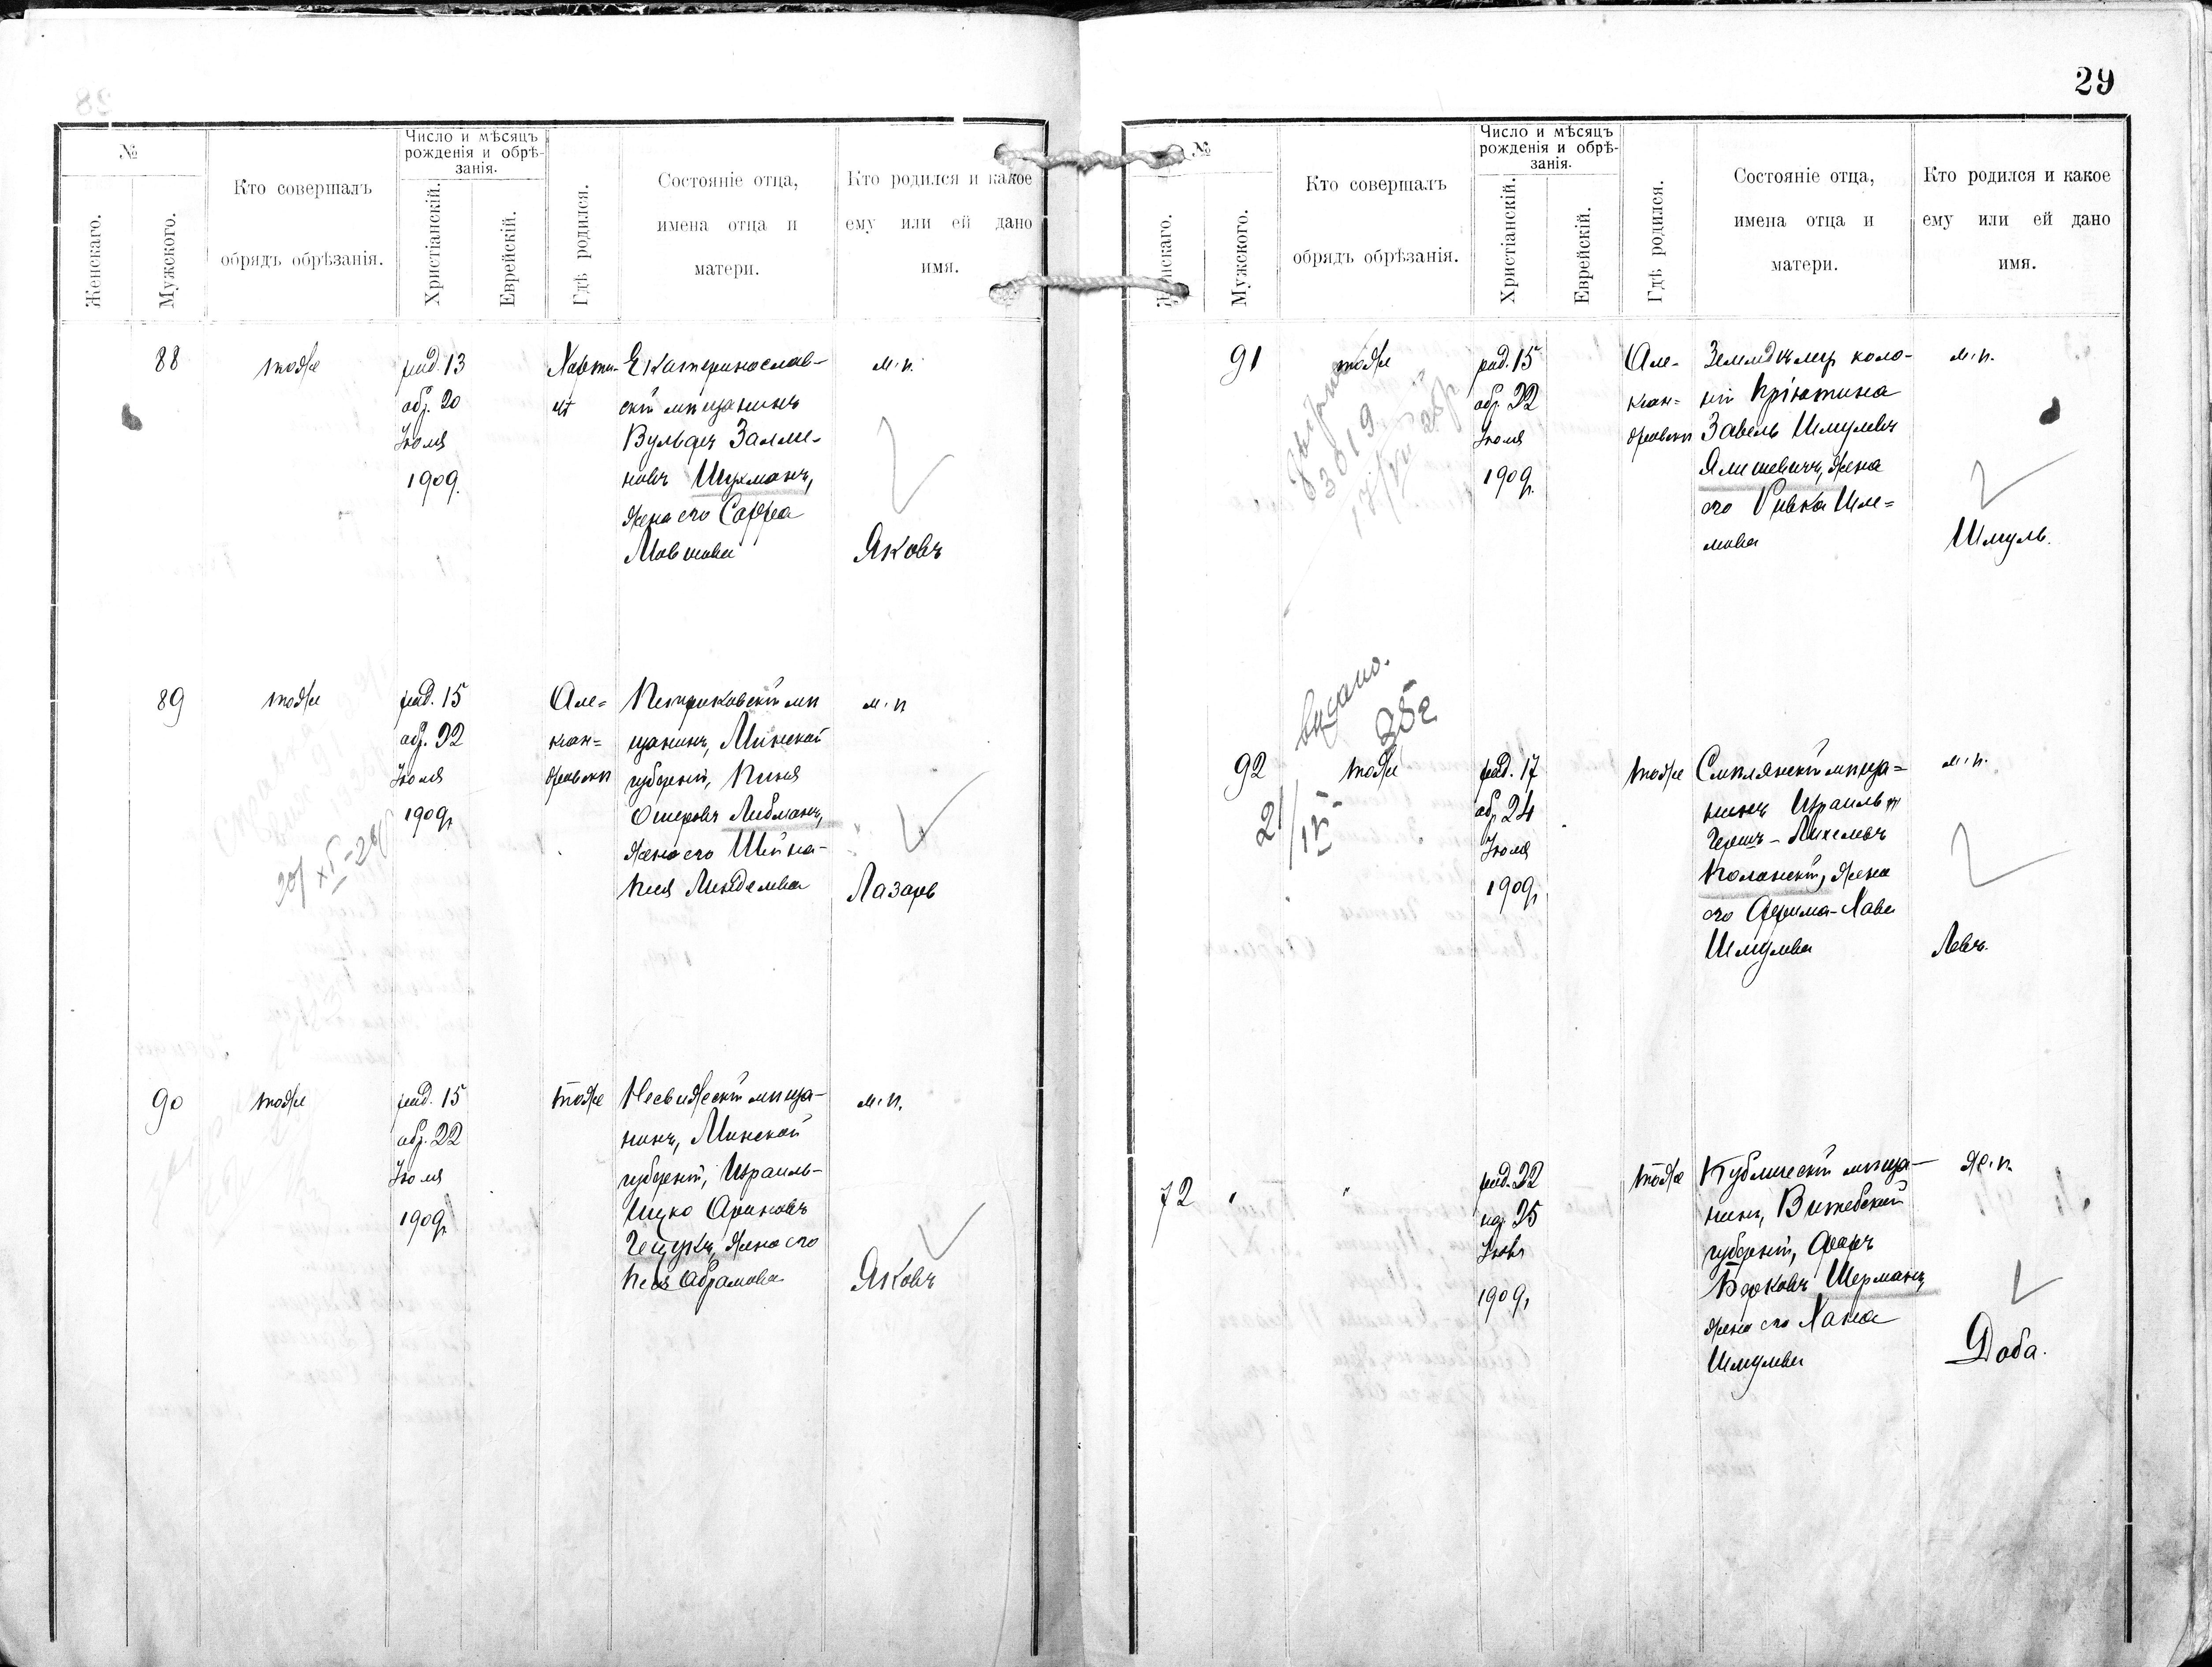 №
Женскаго.
Мужского.
Кто совершалъ
обрядъ обрѣзанія.
Число и мѣсяцъ
рожденія и обрѣ-
занія.
Христіанскій.
Еврейскій.
Гдѣ родился.
Состояніе отца,
имена отца и
матери.
Кто родился и какое
ему или ей дано
имя.
88
тоже
род. 13
обр. 20
Іюля
1909.
Екатеринослав-
скій мѣщанинъ
Вульфъ Залма-
новъ Шухманъ,
жена его Сарра
Мовшова
м. п.
Яковъ
89
тоже
род. 15
обр. 22
Іюля
1909 г.
Але-
ксан-
дровскъ
Петриковскій мѣ
щанинъ, Минской
губерніи, Пиня
Ошеровъ Либманъ,
жена его Шейна-
Песя Менделева
м. п
Лазарь
90
тоже
род. 15
обр. 22
Іюля
1909 г.
тоже
Несвижскій мѣща-
нинъ, Минской
губерніи, Израиль-
Ицко Ароновъ
жена его
Песя Абрамова
м. п.
Яковъ
29
№
Женскаго.
Мужского.
Кто совершалъ
обрядъ обрѣзанія.
Число и мѣсяцъ
рожденія и обрѣ-
занія.
Христіанскій.
Еврейскій.
Гдѣ родился.
Состояніе отца,
имена отца и
матери.
Кто родился и какое
ему или ей дано
имя.
91
тоже
род. 15
обр. 22
Іюля
1909 г.
Але-
ксан-
дровскъ
Земледѣлецъ коло-
ніи Пріютина
Завель Шмулевъ
Ялишевичъ, жена
его Ривка Шле-
мова
м. п.
Шмуль.
выдано.
92
тоже
род. 17
обр. 24
Іюля
1909 г.
тоже
Смилянскій мѣща-
нинъ Израиль
Гершъ-Михелевъ
Полонскій, жена
его Фрума-Хава
Шмулева
м. п.
Левъ.
72
"
"
род. 22
нар. 25
Іюля
1909 г.
тоже
Кубличскій мѣща-
нинъ, Витебской
губерніи,
Берковъ Шерманъ,
жена его Хана
Шмулева
ж. п.
Доба.